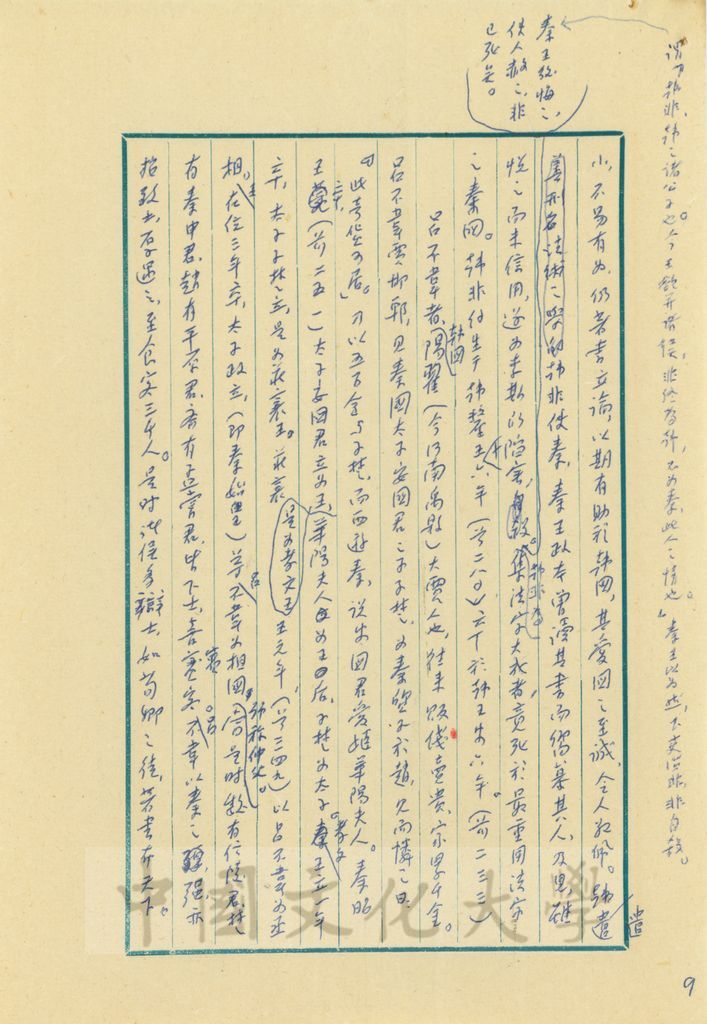 小，不易有為，仍著書立論，以期有助於韓國，其愛國之至誠，令人欽佩。韓遣
善刑名法術之學的韓非使秦，秦王政本曾讀其書而傾慕其人，及見，雖
悅之而未信用，遂為李斯的陷害，自殺。韓非為集法家大成者，竟死於最重用法家
之秦國。韓非約生於韓釐王十六年（前二八〇）亡於韓王安六年。（前二三三）
呂不韋者，韓國陽翟（今河南禹縣）大賈人也，往來販賤賣貴，家累千金。
呂不韋賈邯鄲，見秦國太子安國君之子子楚，為秦質子於趙，見而憐之曰
「此奇貨可居。」乃以五百金與子楚，而西遊秦，說安國君愛姬華陽夫人。秦昭
王薨（前二五一）太子安國君立為王，華陽夫人為王后，子楚為太子。孝文王立一年
卒，太子子楚立，是為莊襄王。莊襄王元年（前二四九）以呂不韋為丞
是為孝文王
相，王在位三年卒，太子政立，（即秦始皇）尊呂不韋為相國，號稱仲父。是時魏有信陵君，楚
有春申君，趙有平原君，齊有孟嘗君，皆下士，喜賓客。呂不韋以秦之強，亦
招致士，厚遇之，至食客三千人。是時諸侯多辯士，如荀卿之徒，著書布天下。
謂「韓非，韓之諸公子也。今王欲并諸侯，非終為韓，不為秦，此人之情也。」秦王以為然，下吏治非，非自殺。
秦王後悔之，
使人赦之，非
已死矣。
遣
9
中國文化大學